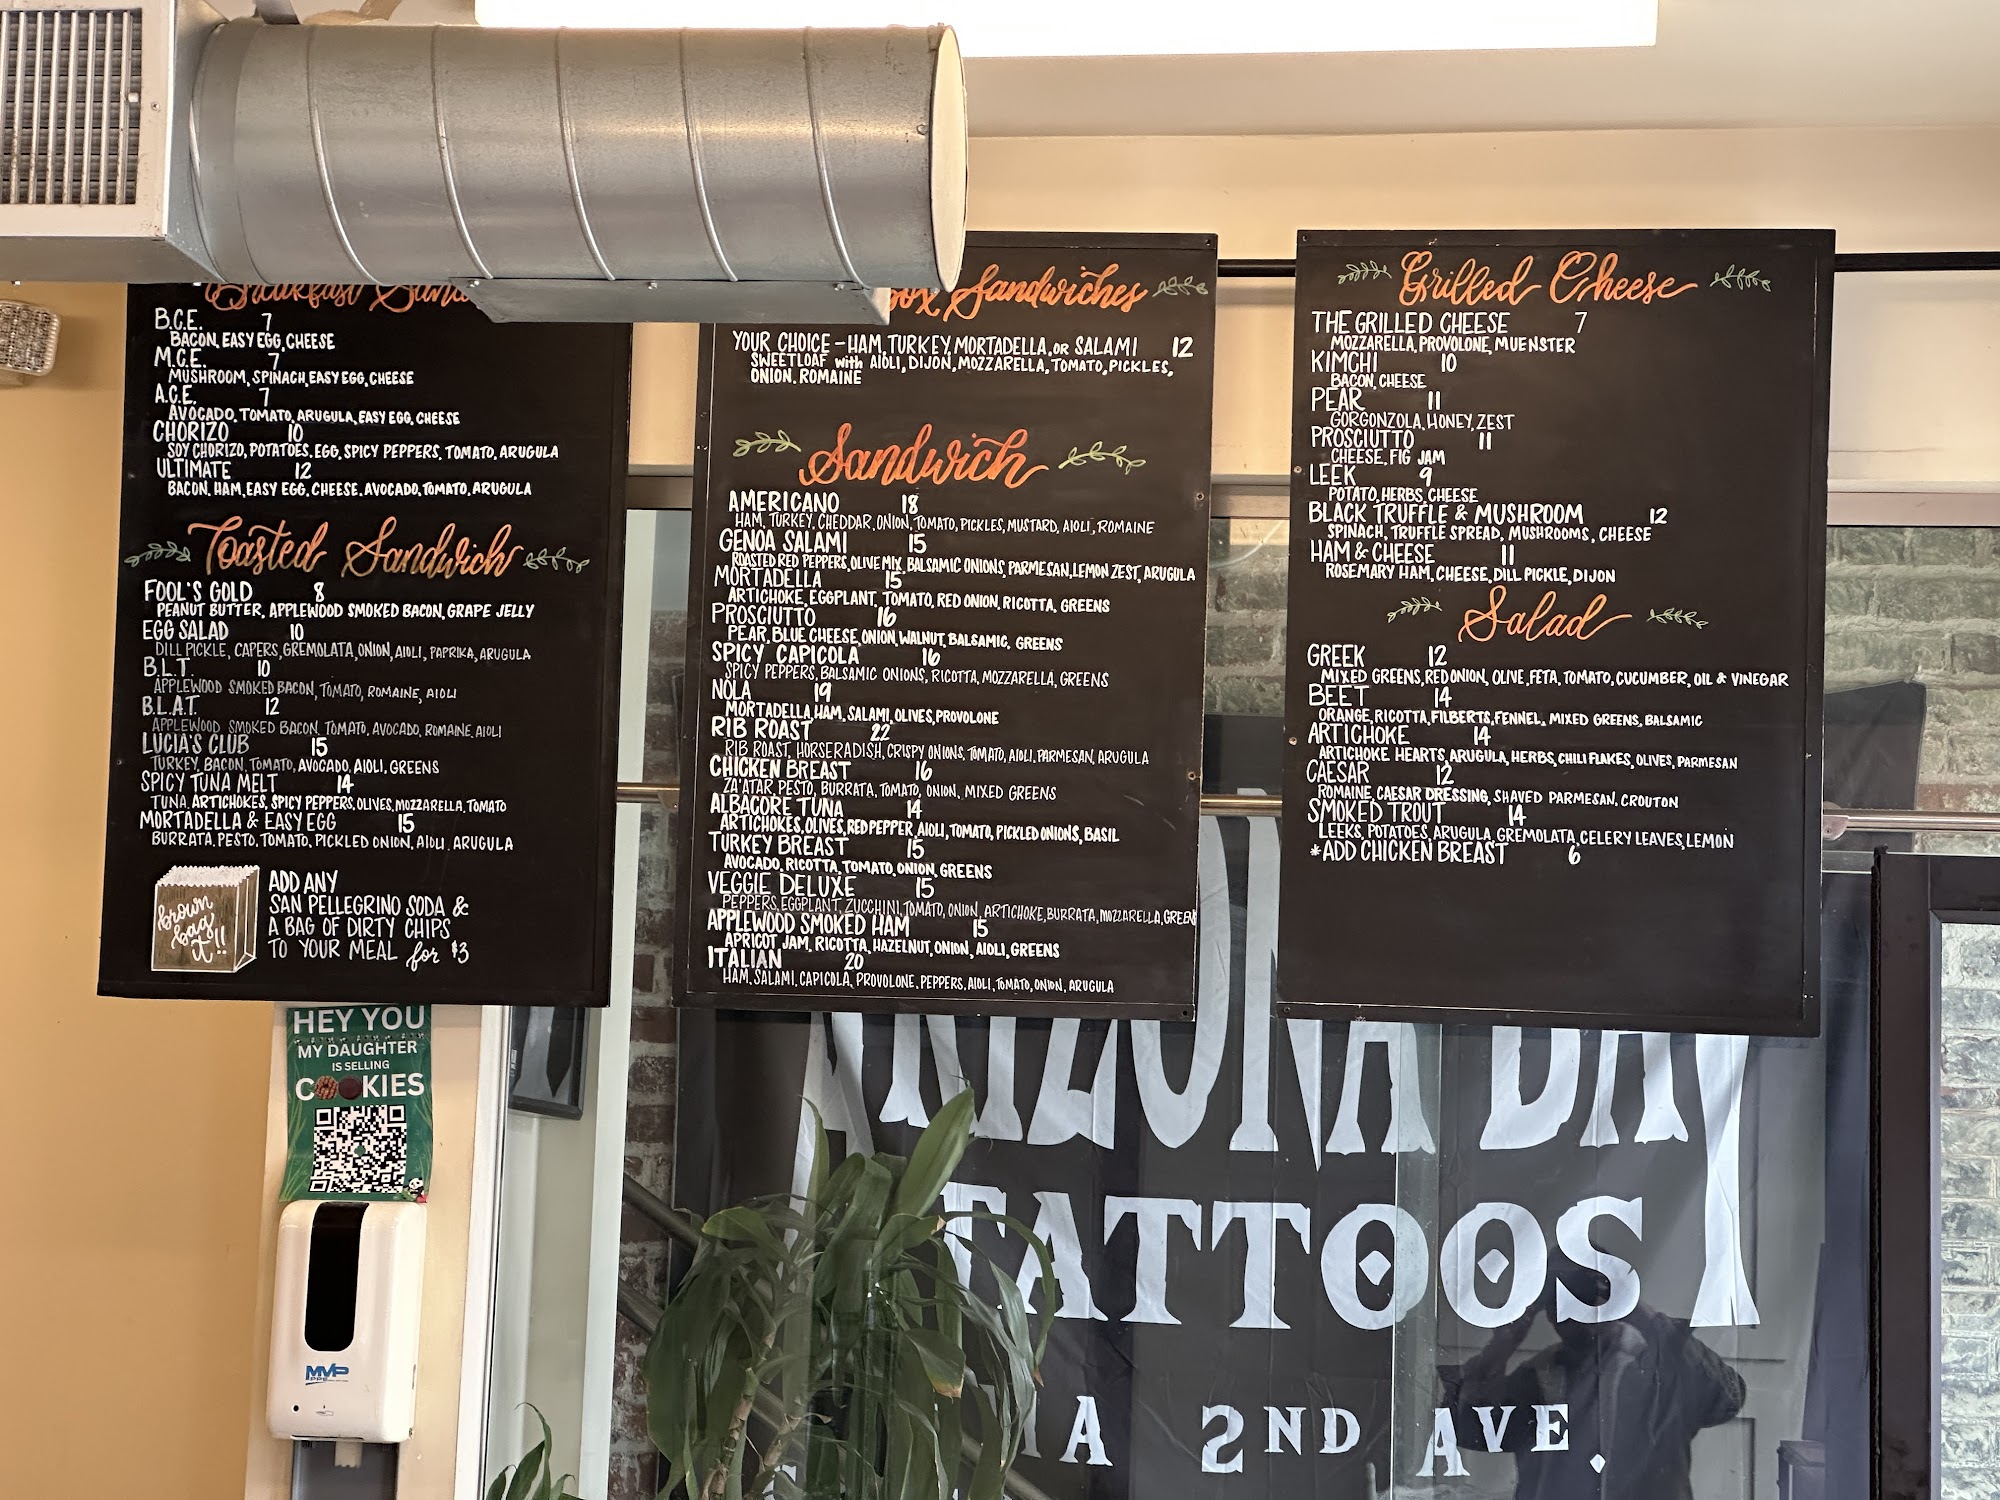 Breakfast
B.C.E. 7
BACON, EASY EGG, CHEESE
M.C.E. 7
MUSHROOM, SPINACH, EASY EGG, CHEESE
A.C.E. 7
AVOCADO, TOMATO, ARUGULA, EASY EGG, CHEESE
CHORIZO 10
SOY CHORIZO, POTATOES, EGG, SPICY PEPPERS, TOMATO, ARUGULA
ULTIMATE 12
BACON, HAM, EASY EGG, CHEESE, AVOCADO, TOMATO, ARUGULA
Toasted Sandwich
FOOL'S GOLD 8
PEANUT BUTTER, APPLEWOOD SMOKED BACON, GRAPE JELLY
EGG SALAD 10
DILL PICKLE, CAPERS, GREMOLATA, ONION, AIOLI, PAPRIKA, ARUGULA
B.L.T. 10
APPLEWOOD SMOKED BACON, TOMATO, ROMAINE, AIOLI
B.L.A.T. 12
APPLEWOOD SMOKED BACON, TOMATO, AVOCADO, ROMAINE, AIOLI
LUCIA'S CLUB 15
TURKEY, BACON, TOMATO, AVOCADO, AIOLI, GREENS
SPICY TUNA MELT 14
TUNA, ARTICHOKES, SPICY PEPPERS, OLIVES, MOZZARELLA, TOMATO
MORTADELLA & EASY EGG 15
BURRATA, PESTO, TOMATO, PICKLED ONION, AIOLI, ARUGULA
brown bag it!!
ADD ANY
SAN PELLEGRINO SODA &
A BAG OF DIRTY CHIPS
TO YOUR MEAL for $3
Sandwiches
YOUR CHOICE - HAM, TURKEY, MORTADELLA, OR SALAMI 12
SWEETLOAF with AIOLI, DIJON, MOZZARELLA, TOMATO, PICKLES,
ONION, ROMAINE
Sandwich
AMERICANO 18
HAM, TURKEY, CHEDDAR, ONION, TOMATO, PICKLES, MUSTARD, AIOLI, ROMAINE
GENOA SALAMI 15
ROASTED RED PEPPERS, OLIVE MIX, BALSAMIC ONIONS, PARMESAN, LEMON ZEST, ARUGULA
MORTADELLA 15
ARTICHOKE, EGGPLANT, TOMATO, RED ONION, RICOTTA, GREENS
PROSCIUTTO 16
PEAR, BLUE CHEESE, ONION, WALNUT, BALSAMIC, GREENS
SPICY CAPICOLA 16
SPICY PEPPERS, BALSAMIC ONIONS, RICOTTA, MOZZARELLA, GREENS
NOLA 19
MORTADELLA, HAM, SALAMI, OLIVES, PROVOLONE
RIB ROAST 22
RIB ROAST, HORSERADISH, CRISPY ONIONS, TOMATO, AIOLI, PARMESAN, ARUGULA
CHICKEN BREAST 16
ZA'ATAR, PESTO, BURRATA, TOMATO, ONION, MIXED GREENS
ALBACORE TUNA 14
ARTICHOKES, OLIVES, RED PEPPER, AIOLI, TOMATO, PICKLED ONIONS, BASIL
TURKEY BREAST 15
AVOCADO, RICOTTA, TOMATO, ONION, GREENS
VEGGIE DELUXE 15
PEPPERS, EGGPLANT, ZUCCHINI, TOMATO, ONION, ARTICHOKE, BURRATA, MOZZARELLA, GREENS
APPLEWOOD SMOKED HAM 15
APRICOT JAM, RICOTTA, HAZELNUT, ONION, AIOLI, GREENS
ITALIAN 20
HAM, SALAMI, CAPICOLA, PROVOLONE, PEPPERS, AIOLI, TOMATO, ONION, ARUGULA
Grilled Cheese
THE GRILLED CHEESE 7
MOZZARELLA, PROVOLONE, MUENSTER
KIMCHI 10
BACON, CHEESE
PEAR 11
GORGONZOLA, HONEY, ZEST
PROSCIUTTO 11
CHEESE, FIG JAM
LEEK 9
POTATO, HERBS, CHEESE
BLACK TRUFFLE & MUSHROOM 12
SPINACH, TRUFFLE SPREAD, MUSHROOMS, CHEESE
HAM & CHEESE 11
ROSEMARY HAM, CHEESE, DILL PICKLE, DIJON
Salad
GREEK 12
MIXED GREENS, RED ONION, OLIVE, FETA, TOMATO, CUCUMBER, OIL & VINEGAR
BEET 14
ORANGE, RICOTTA, FILBERTS, FENNEL, MIXED GREENS, BALSAMIC
ARTICHOKE 14
ARTICHOKE HEARTS, ARUGULA, HERBS, CHILI FLAKES, OLIVES, PARMESAN
CAESAR 12
ROMAINE, CAESAR DRESSING, SHAVED PARMESAN, CROUTON
SMOKED TROUT 14
LEEKS, POTATOES, ARUGULA, GREMOLATA, CELERY LEAVES, LEMON
*ADD CHICKEN BREAST 6
HEY YOU
MY DAUGHTER
IS SELLING
COOKIES
MVP
ARIZONA BAY
TATTOOS
2ND AVE.